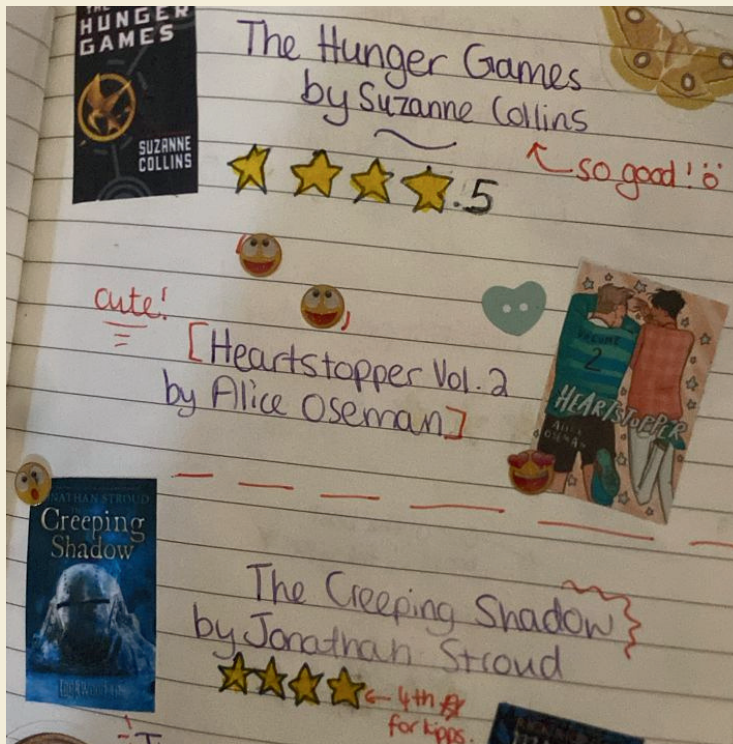 THE
HUNGER
GAMES
SUZANNE
COLLINS
The Hunger Games
by Suzanne Collins
so good!
.5
cute!
[Heartstopper Vol. 2
by Alice Oseman]
VOLUME
2
HEARTSTOPPER
ALICE
OSEMAN
JONATHAN STROUD
Creeping
Shadow
The Creeping Shadow
by Jonathan Stroud
4th
for kipps.